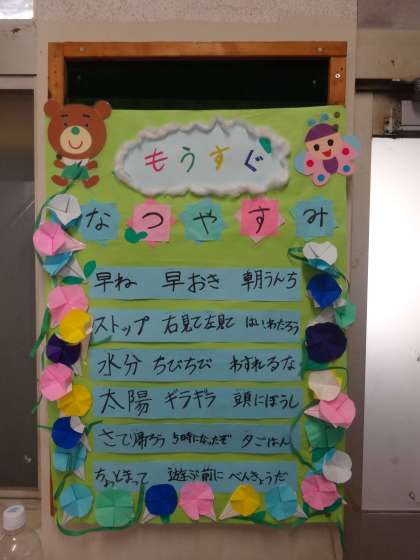 もうすぐ
なつやすみ
早ね 早おき 朝うんち
ストップ 右見て左見て はいわたろう
水分 ちびちび わすれるな
太陽 ギラギラ 頭にぼうし
さて帰ろう 5時になったぞ 夕ごはん
ちょっとまって 遊ぶ前に べんきょうだ